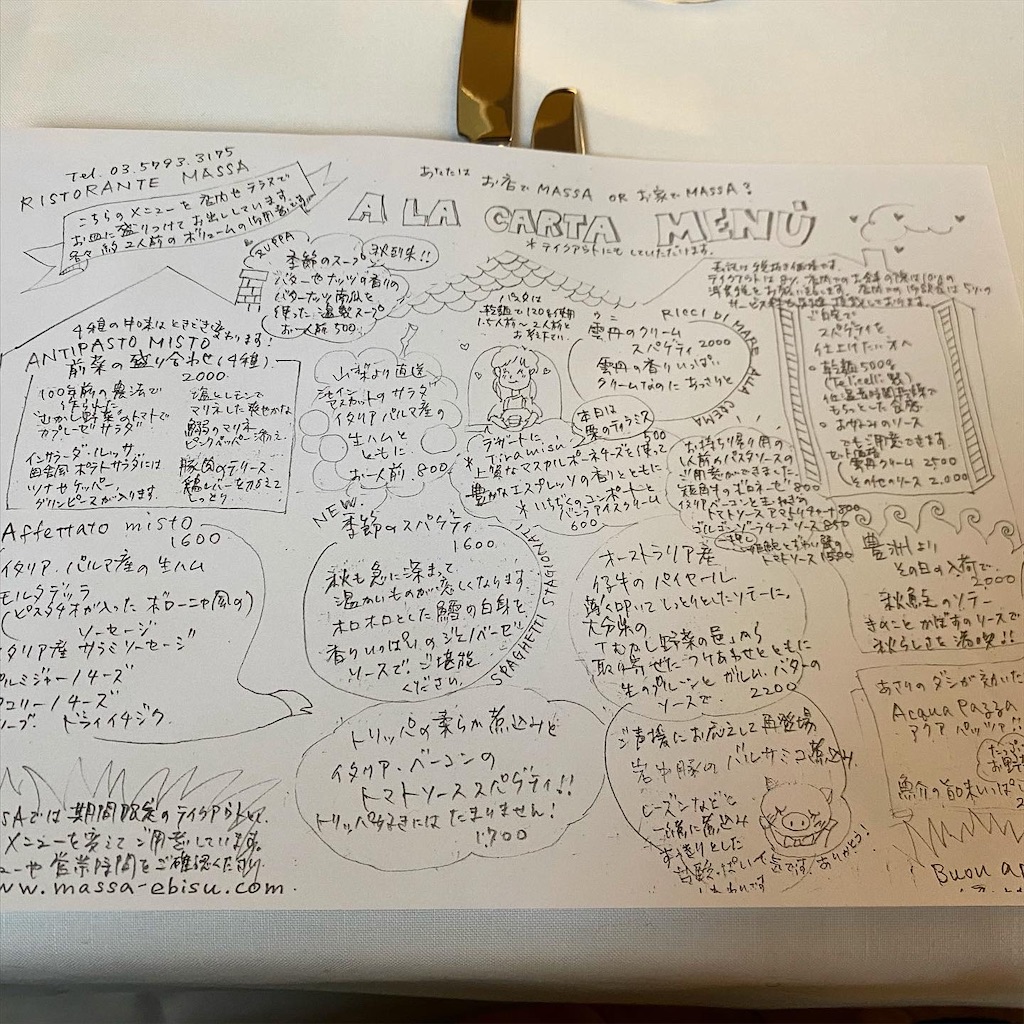 Tel. 03.5793.3175
RISTORANTE MASSA
こちらのメニューを店内やテラスで
お皿に盛りつけてお出ししています。
各々約2人前のボリュームの
あなたは お店でMASSA OR お家でMASSA?
A LA CARTA MENÚ
*テイクアウトにも していただけます。
ZUPPA
秋到来!!
季節のスープ
バターやナッツの香りの
バターナッツ南瓜を
使った温製スープ
お一人前 500
4種の中味はときどき変わります!
ANTIPASTO MISTO
前菜の盛り合わせ(4種)
2000
100年前の農法で
作られた
むかし野菜のトマトで
カプレーゼサラダ
インサラータ・ルッサ
田舎風ポテトサラダには
ツナやケッパー、
グリンピースが入ります。
塩とレモンで
マリネした爽やかな
鰯のマリネ
ピンクペッパー添え
豚肉のテリーヌ
鶏レバーを加えて
しっとり。
山梨より直送
シャインマスカットのサラダ
イタリア パルマ産の
生ハムと
ともに
お一人前. 800
パスタは
乾麺で120g使用
1.5人前〜2人前と
お考え下さい。
RICCI DI MARE ALLA CREMA
ウニ
雲丹のクリーム
スパゲティ 2000
雲丹の香りいっぱい
クリームなのにあっさりと
本日は
栗のティラミス
デザートに、
Tiramisù 500
上質なマスカルポーネチーズを使って
豊かなエスプレッソの香りとともに
*いちぢくのコンポートと
バニラアイスクリーム
600
お持ち帰り用の
1人前のパスタソースの
ご用意ができました。
短角牛のボロネーゼ 800
イタリアベーコンと玉ねぎの
トマトソースアマトリチャーナ 800
ゴルゴンゾーラチーズソース 850
トマトソース 1500
ご自宅で
スパゲティを
仕上げたい方へ
・乾麺500g
低温長時間乾燥で
もちっとした食感
・お好みのソース
でもご用意できます。
セット価格
雲丹クリーム 2500
その他のソース 2.000
Affettato misto
1600
イタリア. パルマ産の生ハム
モルタデッラ
(ピスタチオが入ったボローニャ風の)
ソーセージ
イタリア産 サラミソーセージ
パルミジャーノチーズ
ペコリーノチーズ
オリーブ. ドライイチジク
NEW.
季節のスパゲティ
1600
秋も急に深まって
温かいものが恋しくなります。
ホロホロとした鱈の白身と
香りいっぱいのジェノバーゼ
ソースで. ご堪能
ください。
SPAGHETTI STAGIONATI
オーストラリア産
仔牛のパイヤール
薄く叩いてしっとりとしたソテーに。
大分県の
「むかし野菜の邑」から
取り寄せたつけあわせとともに
生のプルーンとガルム. バターの
ソースで. 2200
豊洲より
その日の入荷で.
2000
秋鮭のソテー
きのことかぼすのソースで
秋らしさを満喫!!
トリッパの柔らか煮込みと
イタリア. ベーコンの
トマトソーススパゲティ!!
トリッパ好きには たまりません!
1700
ご声援にお応えして再登場
岩中豚のバルサミコ煮込み
ビーズンなどと
一緒に煮込み
すっぱい人気です. ありがとう!
あさりのダシが効いた
Acqua Pazza
アクア パッツァ!!
魚介の旨味いっぱい
SSAでは期間限定のテイクアウト
メニューを変えてご用意しています。
ューや営業時間をご確認ください
ww.massa-ebisu.com.
Buon ap